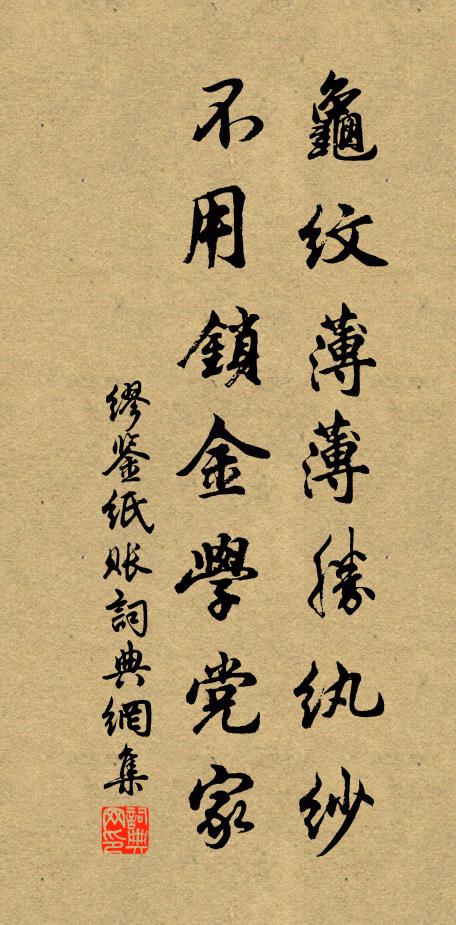 龜紋薄薄勝紈紗
不用鎖金學党家
繆鉴紙賬詞典網集
詞典网印